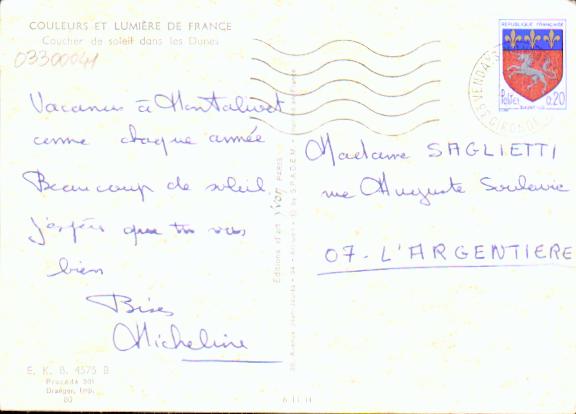 COULEURS ET LUMIÈRE DE FRANCE
Coucher de soleil dans les Dunes
03300041
Vacances à Montalivet
comme chaque année
Beaucoup de soleil
j'espère que tu vas
bien
Bises
Micheline
E. K. B. 4575 B
Procédé 301
Draeger, Imp.
80
Editions d'art Yvon PARIS
REPUBLIQUE FRANÇAISE
Postes 0,20
VENDAYS
33 GIRONDE
Madame SAGLIETTI
rue Auguste Soulavie
07 - L'ARGENTIERE